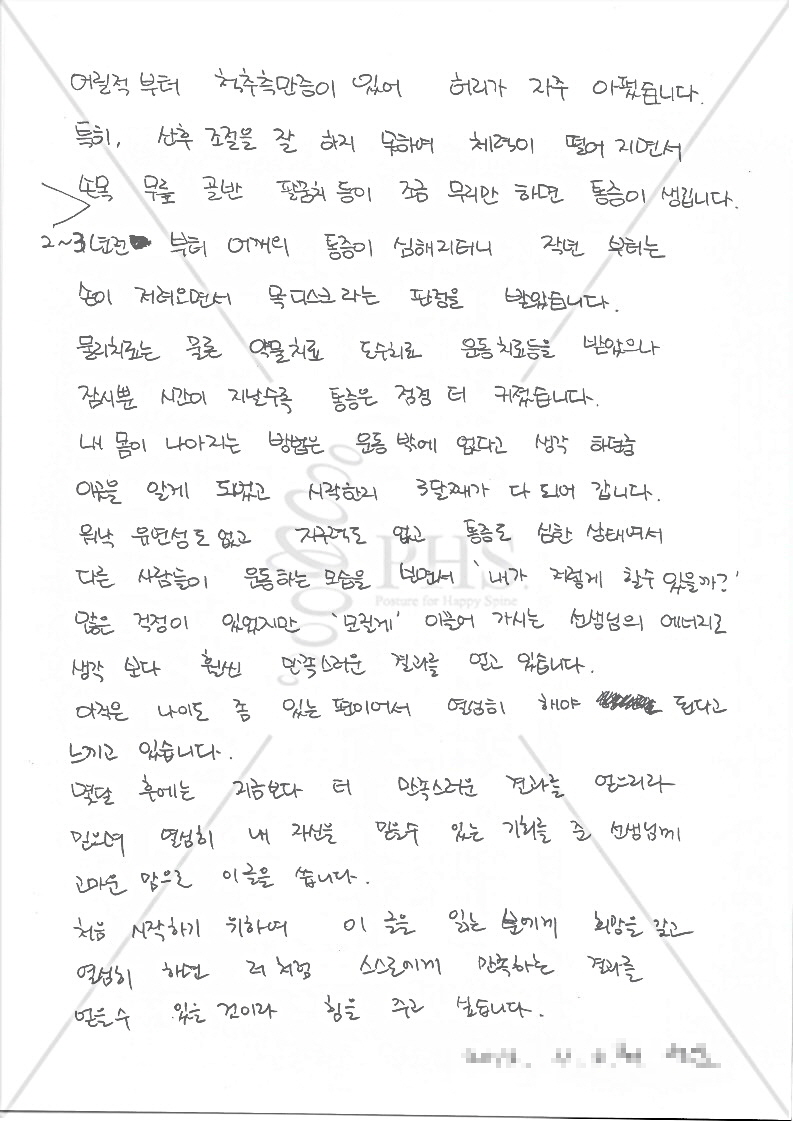 어릴적 부터 척추측만증이 있어 허리가 자주 아펐습니다.
특히, 산후 조절을 잘 하지 못하여 체력이 떨어 지면서
손목 무릎 골반 팔꿈치 등이 조금 무리만 하면 통증이 생깁니다.
2~3년전 부터 어깨의 통증이 심해지더니 작년 부터는
손이 저려오면서 목디스크라는 판정을 받았습니다.
물리치료는 물론 약물치료 도수치료 운동치료등을 받았으나
잠시뿐 시간이 지날수록 통증은 점점 더 커졌습니다.
내 몸이 나아지는 방법은 운동 밖에 없다고 생각 하던중
이곳을 알게 되었고 시작한지 3달째가 다 되어 갑니다.
워낙 유연성도 없고 지구력도 없고 통증도 심한 상태여서
다른 사람들이 운동하는 모습을 보면서 '내가 저렇게 할수 있을까?'
많은 걱정이 있었지만 '모질게' 이끌어 가시는 선생님의 에너지로
생각 보다 훨씬 만족스러운 결과를 얻고 있습니다.
아직은 나이도 좀 있는 편이어서 열심히 해야 된다고
느끼고 있습니다.
몇달 후에는 지금보다 더 만족스러운 결과를 얻으리라
믿으며 열심히 내 자신을 믿을수 있는 기회를 준 선생님께
고마운 맘으로 이글을 씁니다.
처음 시작하기 위하여 이 글을 읽는 분에게 희망을 갖고
열심히 하면 저 처럼 스스로에게 만족하는 결과를
얻을수 있을 것이라 힘을 주고 싶습니다.
PHS
Posture for Happy Spine